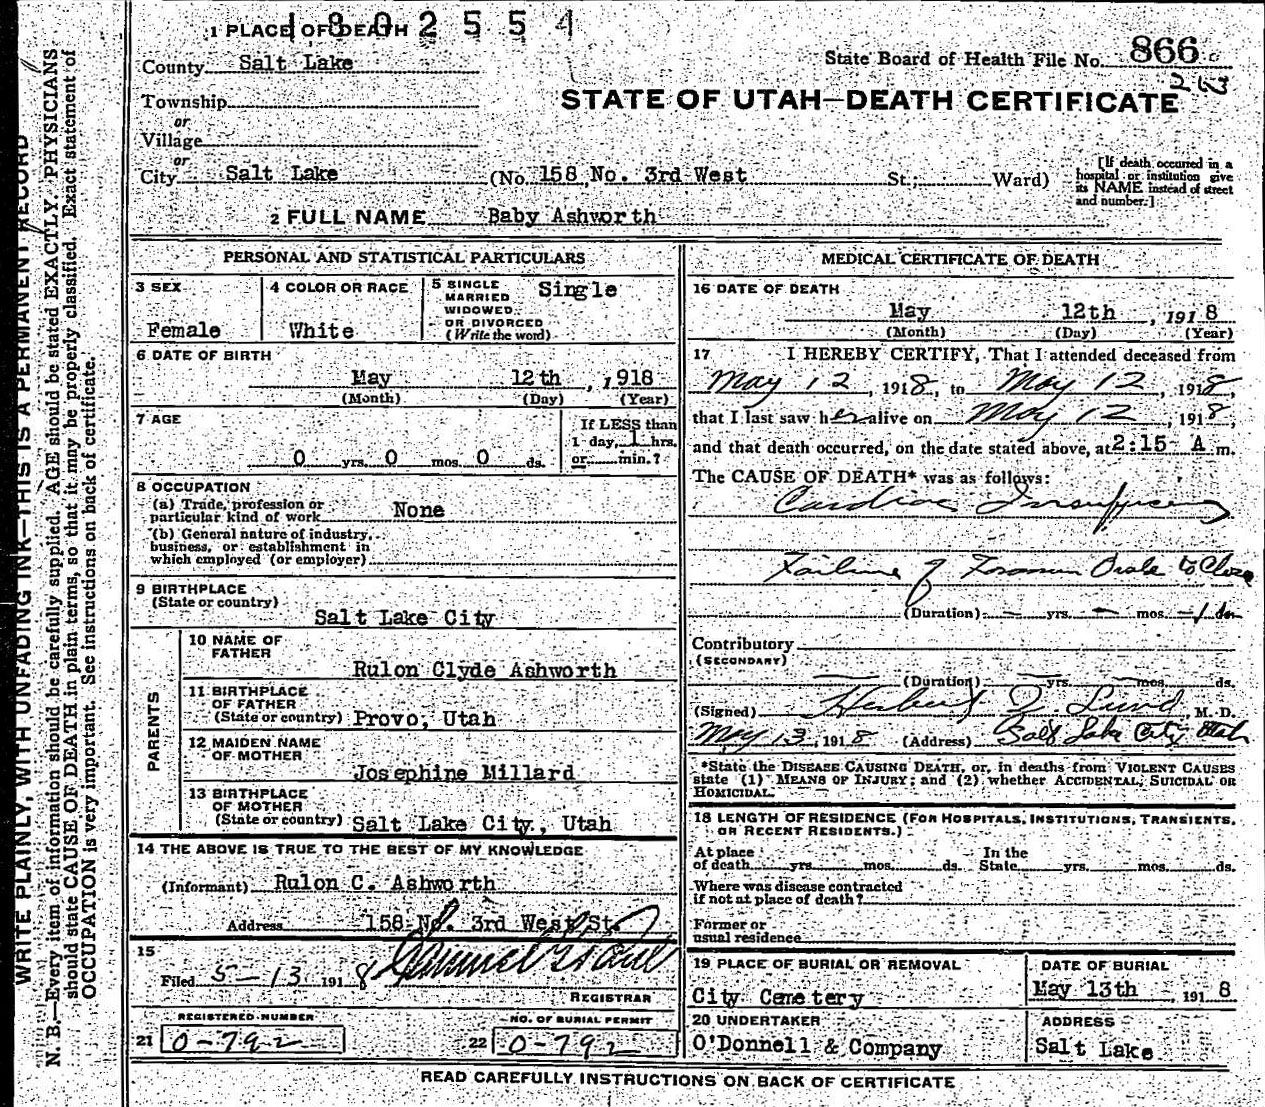 1 PLACE OF DEATH
1802554
County Salt Lake
State Board of Health File No. 866
Township
or
STATE OF UTAH—DEATH CERTIFICATE
Village
or
City Salt Lake (No. 158 No. 3rd West St.; Ward)
[If death occurred in a
hospital or institution give
its NAME instead of street
and number.]
2 FULL NAME Baby Ashworth
WRITE PLAINLY, WITH UNFADING INK—THIS IS A PERMANENT RECORD
N. B.—Every item of information should be carefully supplied. AGE should be stated EXACTLY. PHYSICIANS
should state CAUSE OF DEATH in plain terms, so that it may be properly classified. Exact statement of
OCCUPATION is very important. See instructions on back of certificate.
PERSONAL AND STATISTICAL PARTICULARS
3 SEX
Female
4 COLOR OR RACE
White
5 SINGLE
MARRIED
WIDOWED
OR DIVORCED
(Write the word)
Single
6 DATE OF BIRTH
May 12th, 1918
(Month) (Day) (Year)
7 AGE
0 yrs. 0 mos. 0 ds.
If LESS than
1 day, 1 hrs.
or min.?
8 OCCUPATION
(a) Trade, profession or
particular kind of work None
(b) General nature of industry,
business, or establishment in
which employed (or employer)
9 BIRTHPLACE
(State or country)
Salt Lake City
PARENTS
10 NAME OF
FATHER
Rulon Clyde Ashworth
11 BIRTHPLACE
OF FATHER
(State or country) Provo, Utah
12 MAIDEN NAME
OF MOTHER
Josephine Millard
13 BIRTHPLACE
OF MOTHER
(State or country) Salt Lake City, Utah
14 THE ABOVE IS TRUE TO THE BEST OF MY KNOWLEDGE
(Informant) Rulon C. Ashworth
Address 158 No. 3rd West St.
15
Filed 5-13 1918
REGISTRAR
REGISTERED NUMBER
21 0-792
NO. OF BURIAL PERMIT
22 0-792
MEDICAL CERTIFICATE OF DEATH
16 DATE OF DEATH
May 12th, 1918
(Month) (Day) (Year)
17 I HEREBY CERTIFY, That I attended deceased from
May 12, 1918, to May 12, 1918,
that I last saw her alive on May 12, 1918,
and that death occurred, on the date stated above, at 2:15 A m.
The CAUSE OF DEATH* was as follows:
Cardiac Insufficiency
Failure of Foramen Ovale to Close
(Duration) — yrs. — mos. 1 ds.
Contributory
(SECONDARY)
(Duration) yrs. mos. ds.
(Signed) Herbert Z. Lund, M. D.
May 13, 1918 (Address) Salt Lake City Utah
*State the DISEASE CAUSING DEATH, or, in deaths from VIOLENT CAUSES
state (1) MEANS OF INJURY; and (2) whether ACCIDENTAL, SUICIDAL OR
HOMICIDAL.
18 LENGTH OF RESIDENCE (FOR HOSPITALS, INSTITUTIONS, TRANSIENTS,
OR RECENT RESIDENTS.)
At place In the
of death yrs. mos. ds. State yrs. mos. ds.
Where was disease contracted
if not at place of death?
Former or
usual residence
19 PLACE OF BURIAL OR REMOVAL
City Cemetery
DATE OF BURIAL
May 13th, 1918
20 UNDERTAKER
O'Donnell & Company
ADDRESS
Salt Lake
READ CAREFULLY INSTRUCTIONS ON BACK OF CERTIFICATE